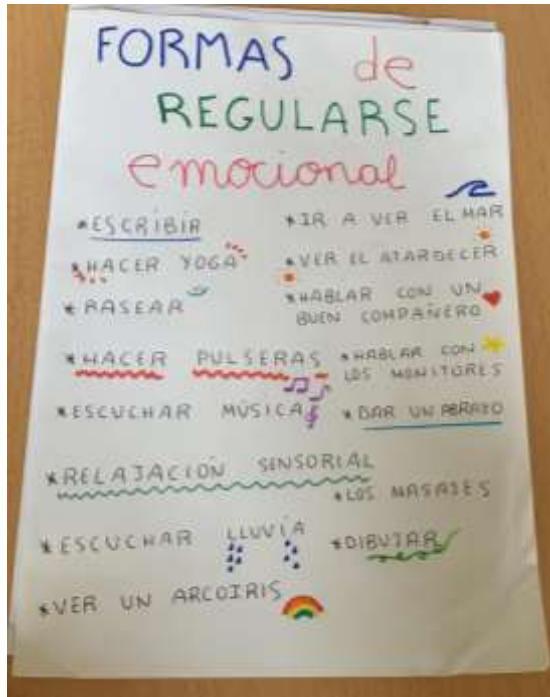 FORMAS de
REGULARSE
emocional
*ESCRIBIR
*HACER YOGA
*PASEAR
*HACER PULSERAS
*ESCUCHAR MÚSICA
*RELAJACIÓN SENSORIAL
*ESCUCHAR LLUVIA
*VER UN ARCOIRIS
*IR A VER EL MAR
*VER EL ATARDECER
*HABLAR CON UN
BUEN COMPAÑERO
*HABLAR CON
LOS MONITORES
*DAR UN ABRAZO
*LOS MASAJES
*DIBUJAR